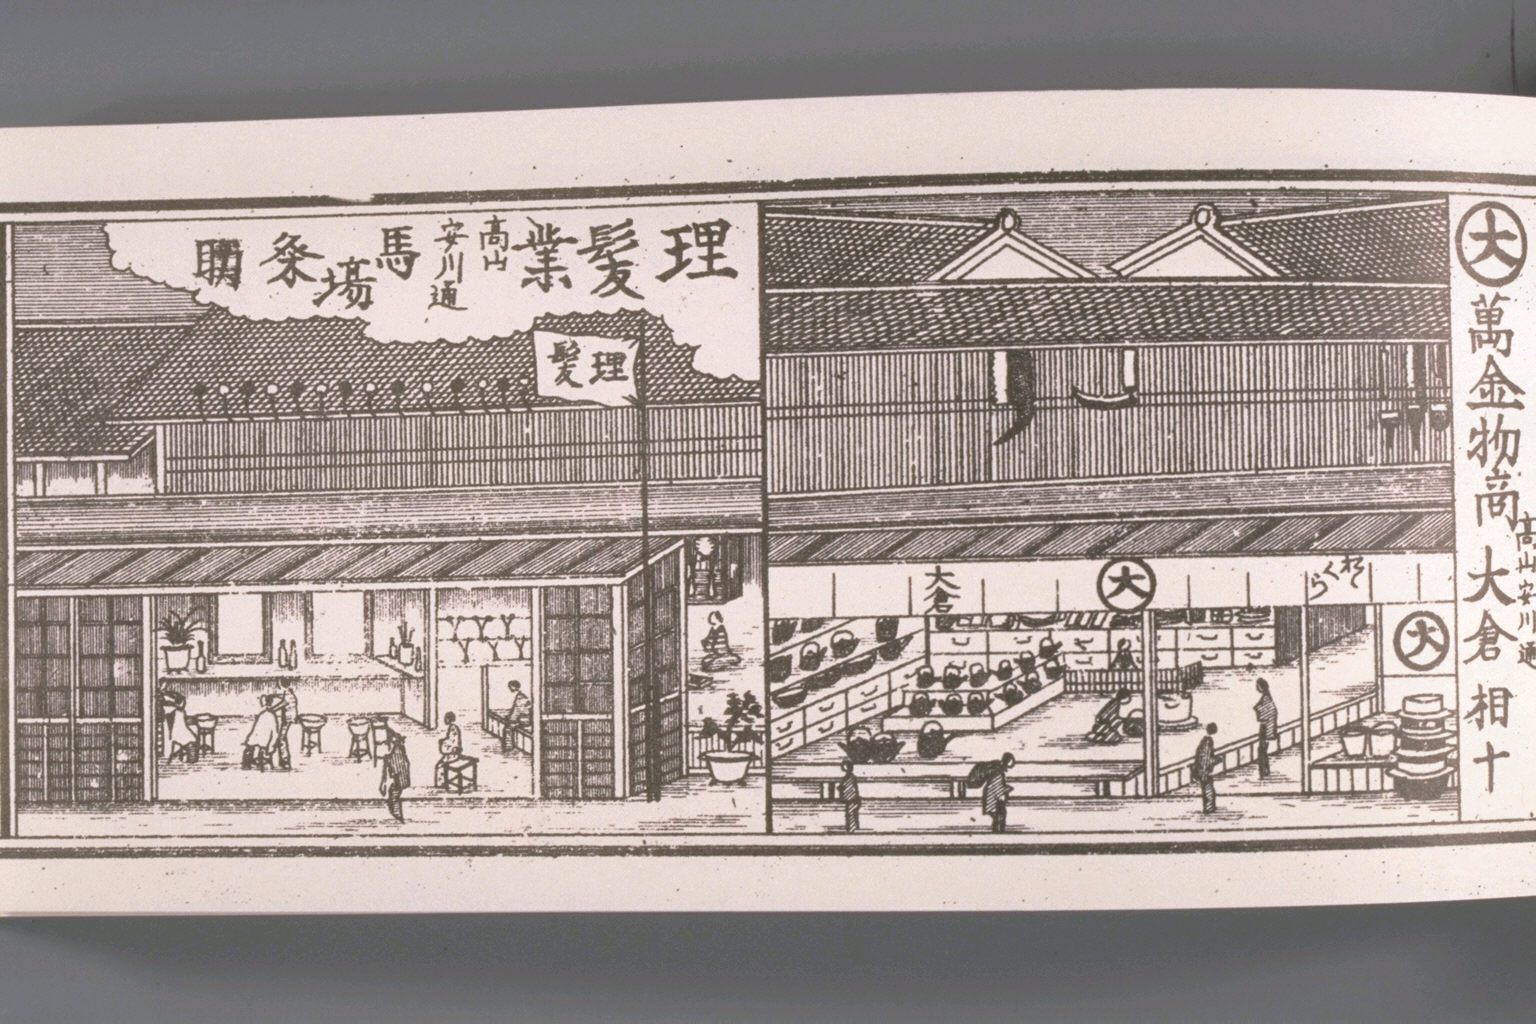 大
萬金物商
高山安川通
大倉相十
大倉
大
大
理髪業
高山
安川通
馬場粂
理髪